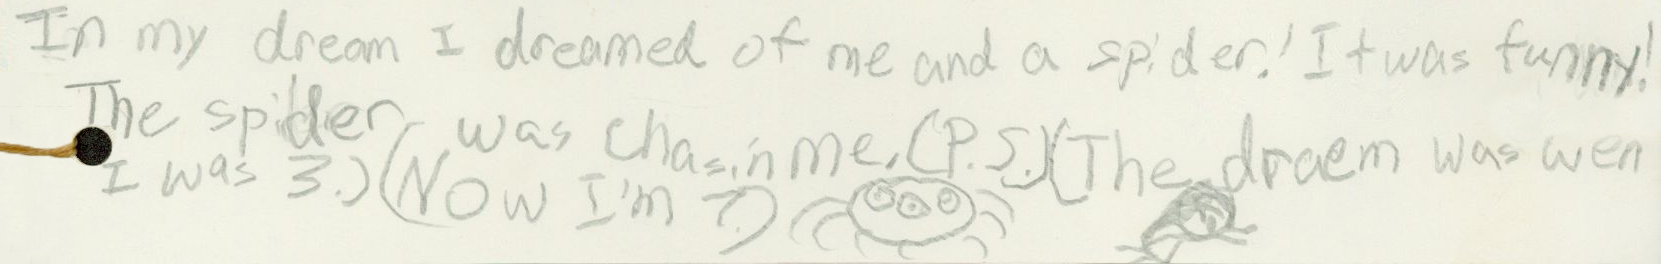 In my dream I dreamed of me and a spider! It was funny!
The spider was chasin me. (P.S.) (The draem was wen
I was 3.) (Now I'm 7)